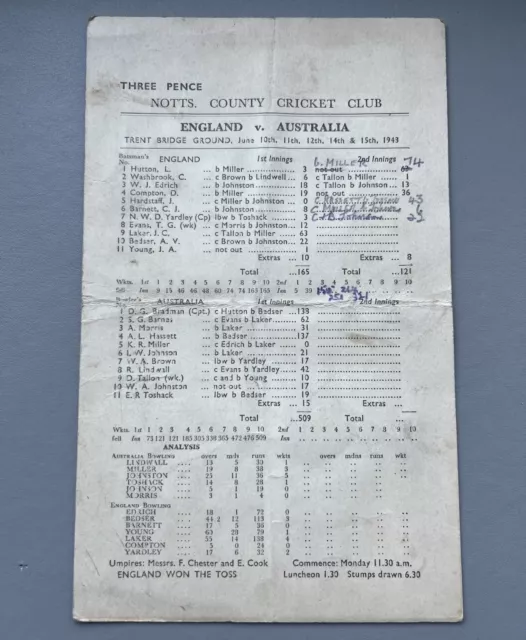 THREE PENCE
NOTTS. COUNTY CRICKET CLUB
ENGLAND v. AUSTRALIA
TRENT BRIDGE GROUND, June 10th, 11th, 12th, 14th & 15th, 1943
Batsman's No. ENGLAND 1st Innings b. MILLER 2nd Innings 74
1 Hutton, L. ... b Miller ... 3 not out ...
2 Washbrook, C. ... c Brown b Lindwall ... 6 c Tallon b Miller ... 1
3 W. J. Edrich ... b Johnston ... 18 c Tallon b Johnson ... 13
4 Compton, D. ... b Miller ... 19 not out ... 36
5 Hardstaff, J. ... c Miller b Johnston ... 0 43
6 Barnett, C. J. ... b Johnston ... 8
7 N. W. D. Yardley (Cp) lbw b Toshack ... 3
8 Evans, T. G. (wk) ... c Morris b Johnston ... 12
9 Laker, J. C. ... c Tallon b Miller ... 63
10 Bedser, A. V. ... c Brown b Johnston ... 22
11 Young, J. A. ... not out ... 1
Extras ... 10 Extras ... 8
Total ... 165 Total ... 121
Wkts. 1st 2 3 4 5 6 7 8 9 10 2nd 1 2 3 4 5 6 7 8 9 10
fell Inn 9 15 46 46 48 60 74 74 163 165 Inn 5 39
Bowler's No. AUSTRALIA 1st Innings 2nd Innings
1 D. G. Bradman (Cpt.) c Hutton b Bedser ... 138
2 S. G. Barnes ... c Evans b Laker ... 62
3 A. Morris ... b Laker ... 31
4 A. L. Hassett ... b Bedser ... 137
5 K. R. Miller ... c Edrich b Laker ... 0
6 I. W. Johnson ... b Laker ... 21
7 W. A. Brown ... lbw b Yardley ... 17
8 R. Lindwall ... c Evans b Yardley ... 42
9 D. Tallon (wk.) ... c and b Young ... 10
10 W. A. Johnston ... not out ... 17
11 E. R Toshack ... lbw b Bedser ... 19
Extras ... 15 Extras ...
Total ... 509 Total ...
Wkts. 1st 1 2 3 4 5 6 7 8 9 10 2nd 1 2 3 4 5 6 7 8 9 10
fell Inn 73 121 121 185 305 338 365 472 476 509 Inn
ANALYSIS
AUSTRALIA BOWLING overs mdns runs wkts overs mdns runs wkts
LINDWALL ... 13 5 30 1
MILLER ... 19 8 38 3
JOHNSTON ... 25 11 36 5
TOSHACK ... 14 8 28 1
JOHNSON ... 5 1 19 0
MORRIS ... 3 1 4 0
ENGLAND BOWLING
EDRICH ... 18 1 72 0
BEDSER ... 44.2 12 113 3
BARNETT ... 17 5 36 0
YOUNG ... 60 28 79 1
LAKER ... 55 14 138 4
COMPTON ... 5 0 24 0
YARDLEY ... 17 6 32 2
Umpires: Messrs. F. Chester and E. Cook Commence: Monday 11.30 a.m.
ENGLAND WON THE TOSS Luncheon 1.30 Stumps drawn 6.30